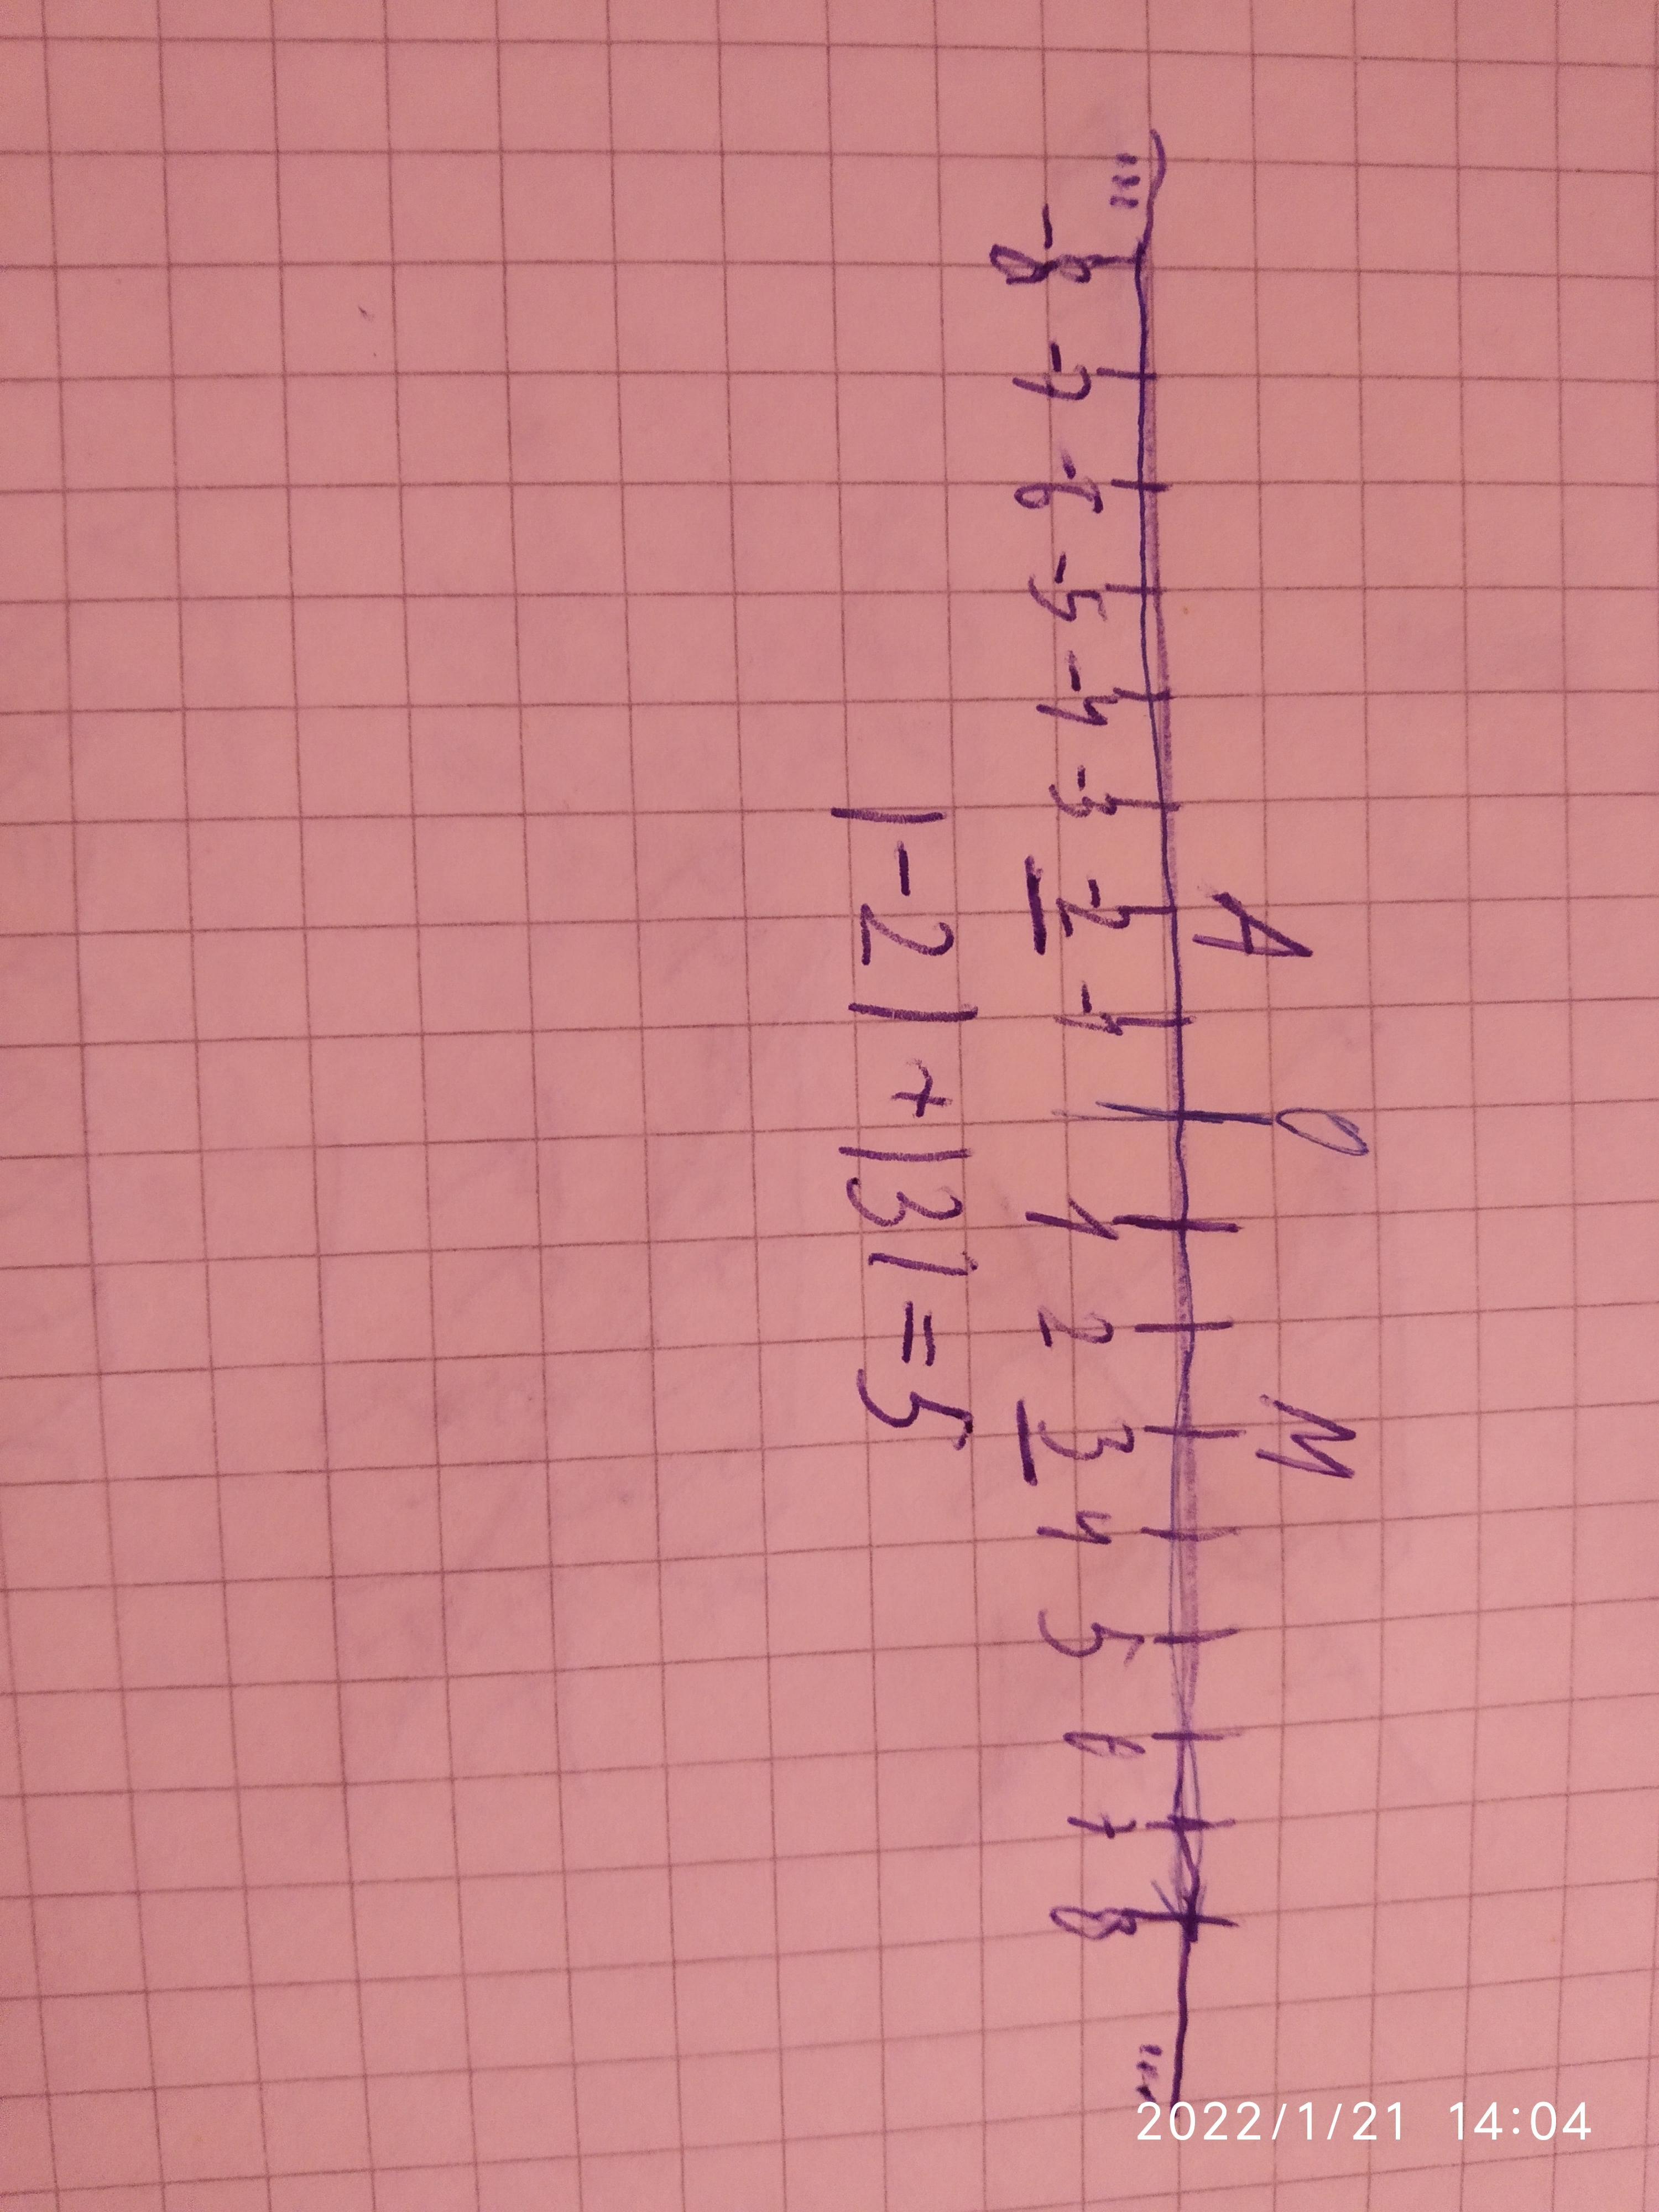 A 0 M
... -8 -7 -6 -5 -4 -3 -2 -1 1 2 3 4 5 6 7 8 ...
|-2| + |3| = 5
2022/1/21 14:04